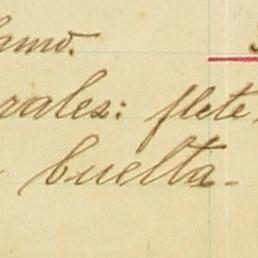 lamo.
rales: flete
buelta-